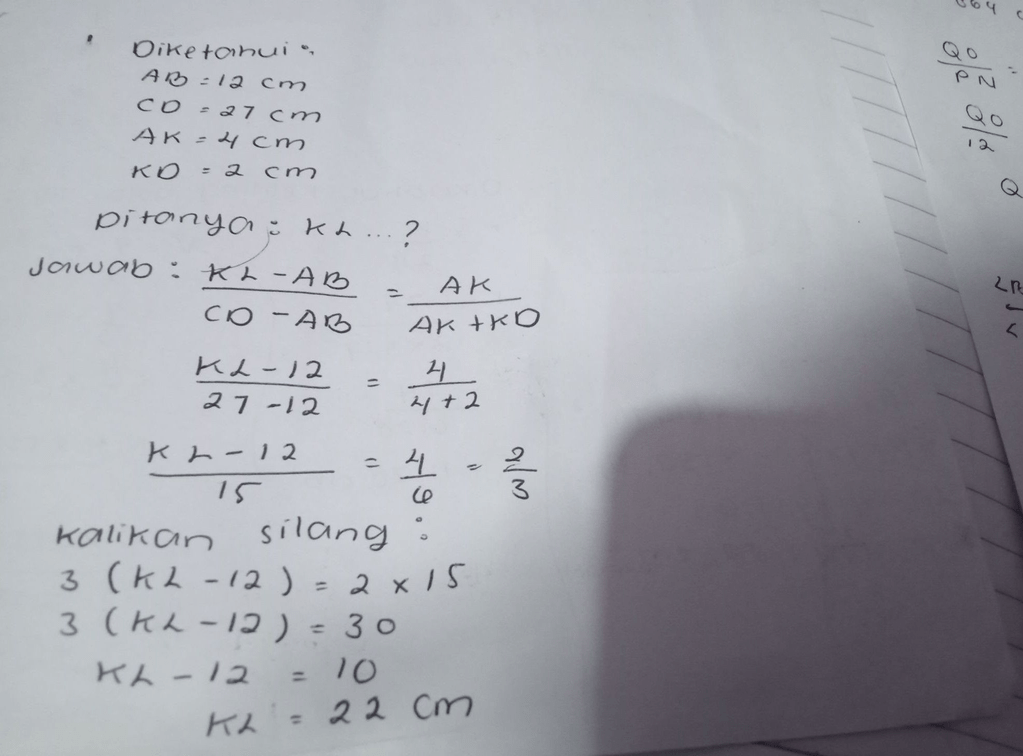 Diketahui :
AB = 12 cm
CD = 27 cm
AK = 4 cm
KD = 2 cm
Ditanya : KL ... ?
Jawab : KL - AB / CD - AB = AK / AK + KD
KL - 12 / 27 - 12 = 4 / 4 + 2
KL - 12 / 15 = 4 / 6 = 2 / 3
Kalikan silang :
3 (KL - 12) = 2 x 15
3 (KL - 12) = 30
KL - 12 = 10
KL = 22 cm
QO / PN =
QO / 12
Q